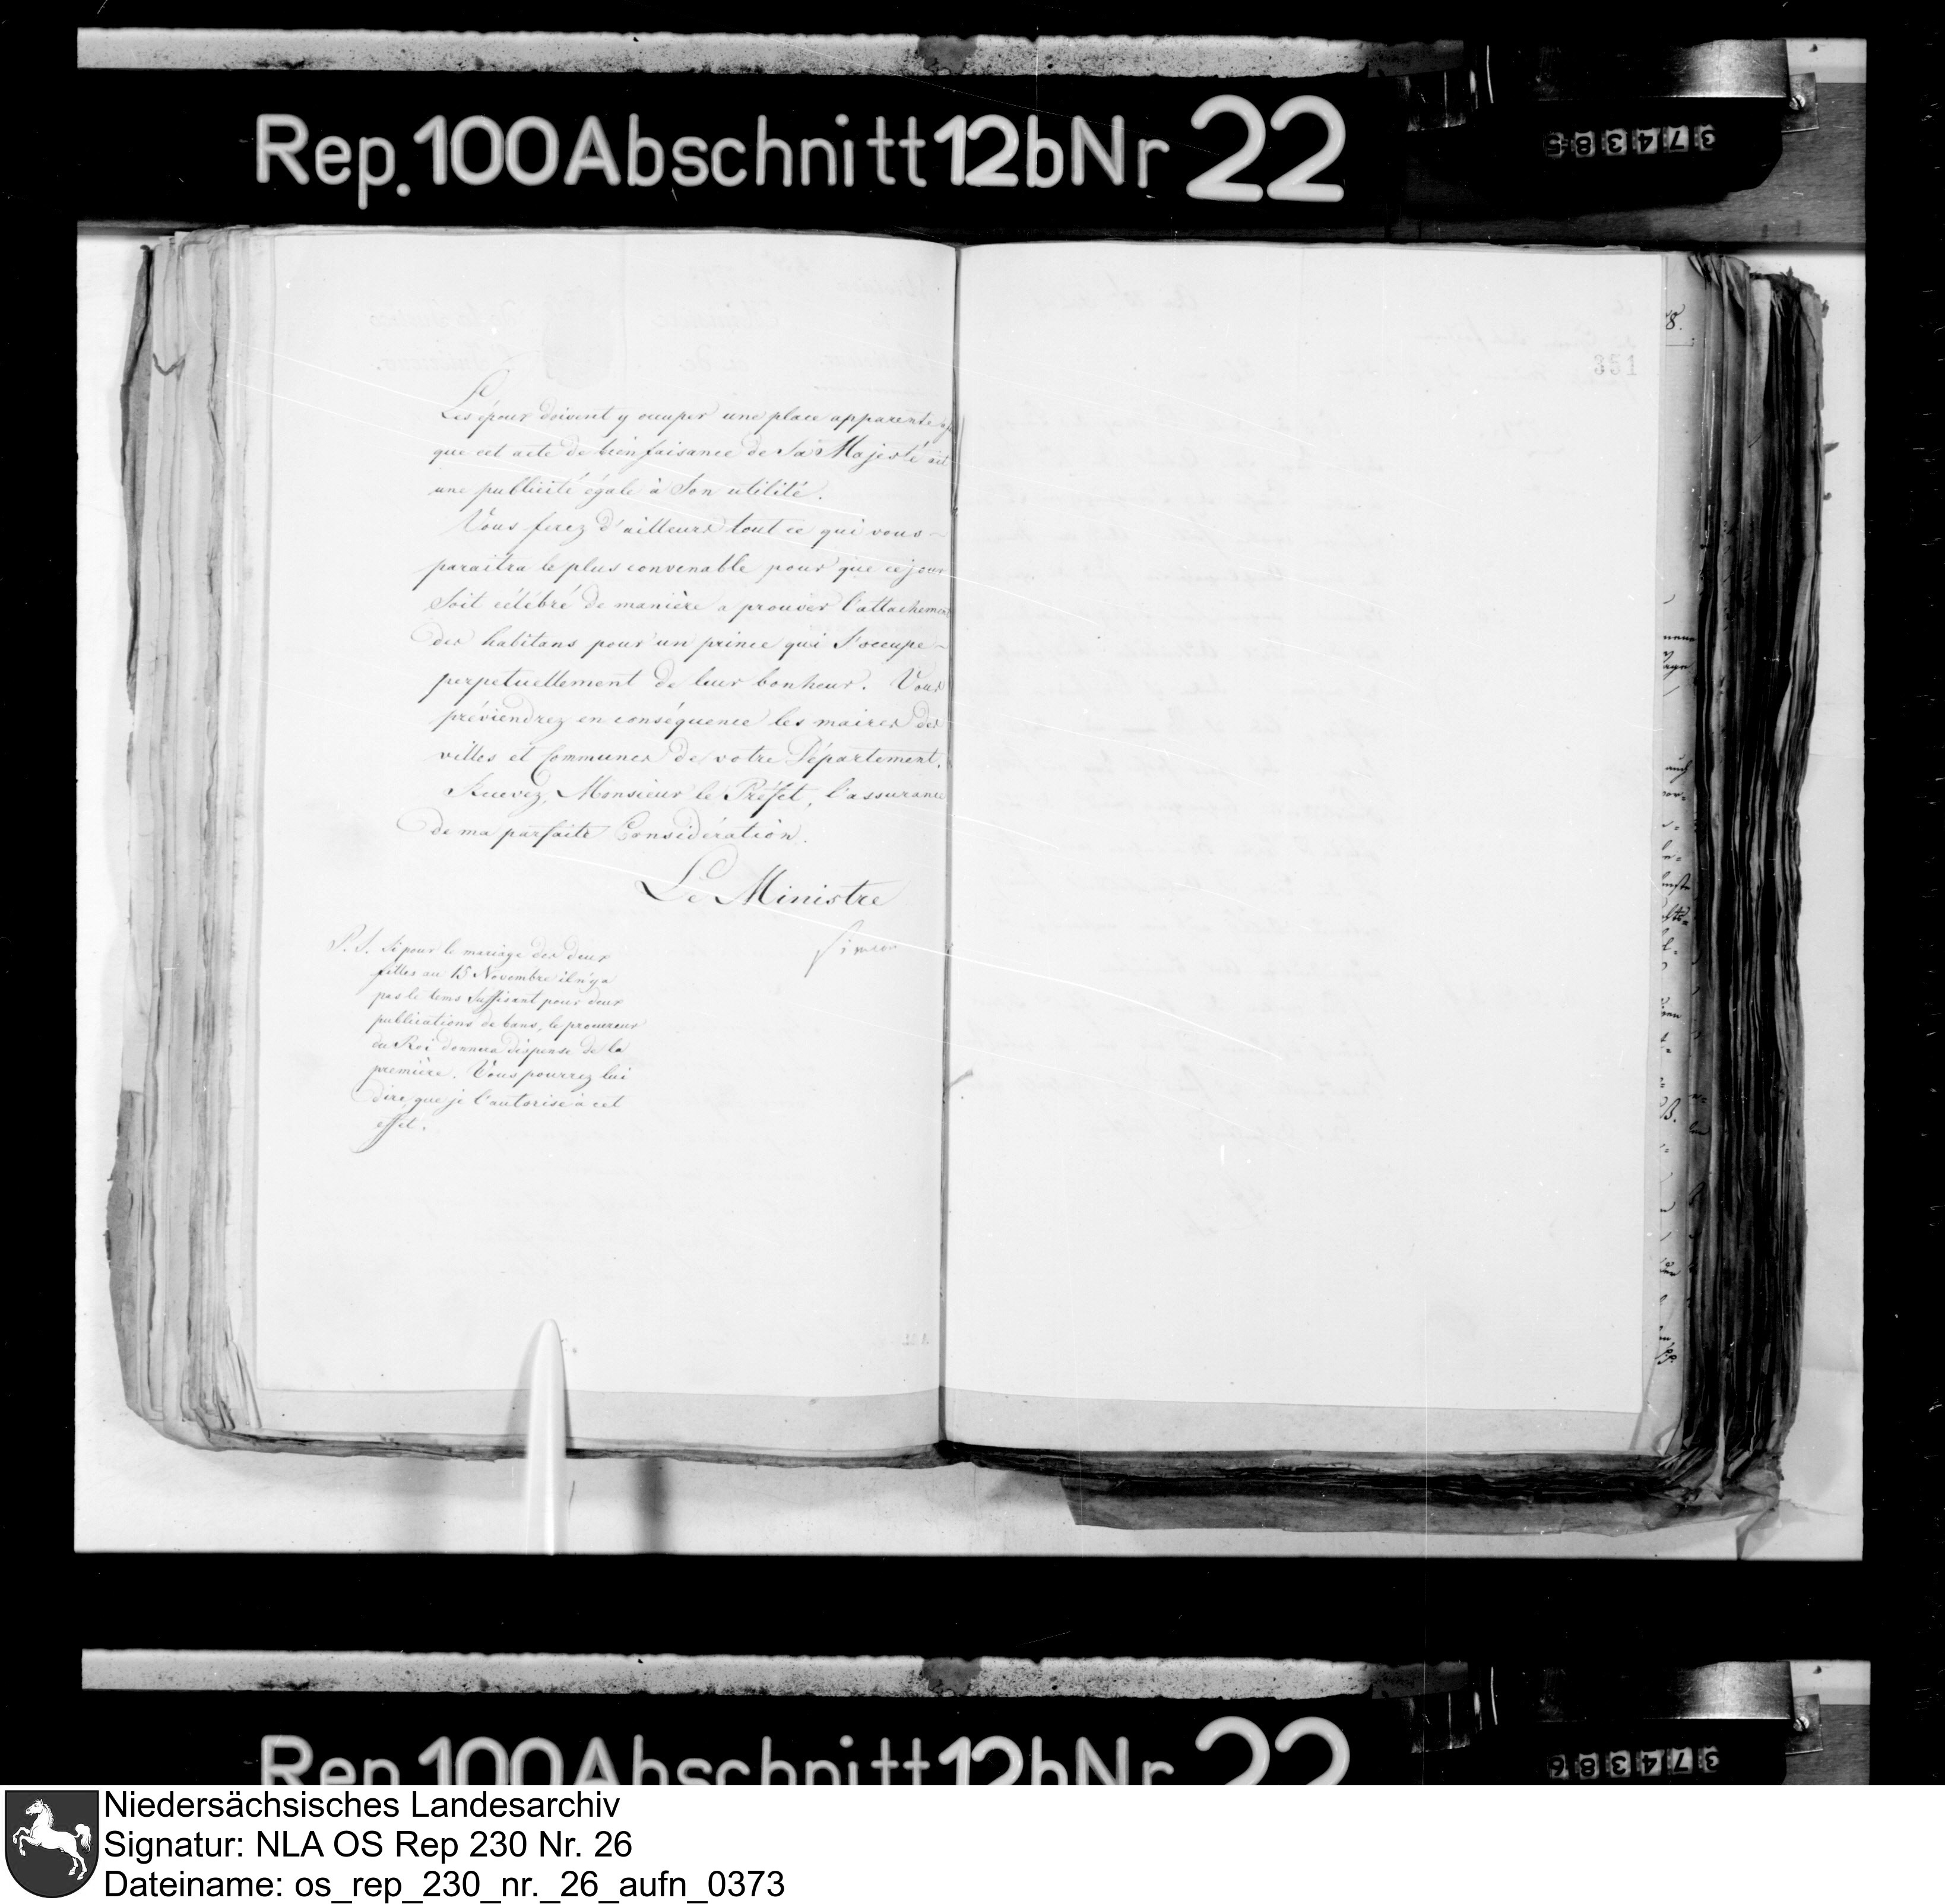 Rep. 100 Abschnitt 12b Nr 22
374385
351
Les époux doivent y occuper une place apparente,
que cet acte de bienfaisance de Sa Majesté ait
une publicité égale à Son utilité.
Vous ferez d'ailleurs tout ce qui vous
paraitra le plus convenable pour que ce jour
Soit célébré de manière a prouver l'attachement
des habitans pour un prince qui S'occupe
perpetuellement de leur bonheur. Vous
préviendrez en conséquence les maires des
villes et Communes de votre Département.
Recevez, Monsieur le Préfet, l'assurance
de ma parfaite Considération.
Le Ministre
Simeon
P. S. Si pour le mariage des deux
filles au 15 Novembre il n'y a
pas le tems Suffisant pour deux
publications de bans, le procureur
du Roi donnera dispense de la
première. Vous pourrez lui
dire que je l'autorise à cet
effet.
Rep. 100 Abschnitt 12b Nr 22
374386
Niedersächsisches Landesarchiv
Signatur: NLA OS Rep 230 Nr. 26
Dateiname: os_rep_230_nr._26_aufn_0373